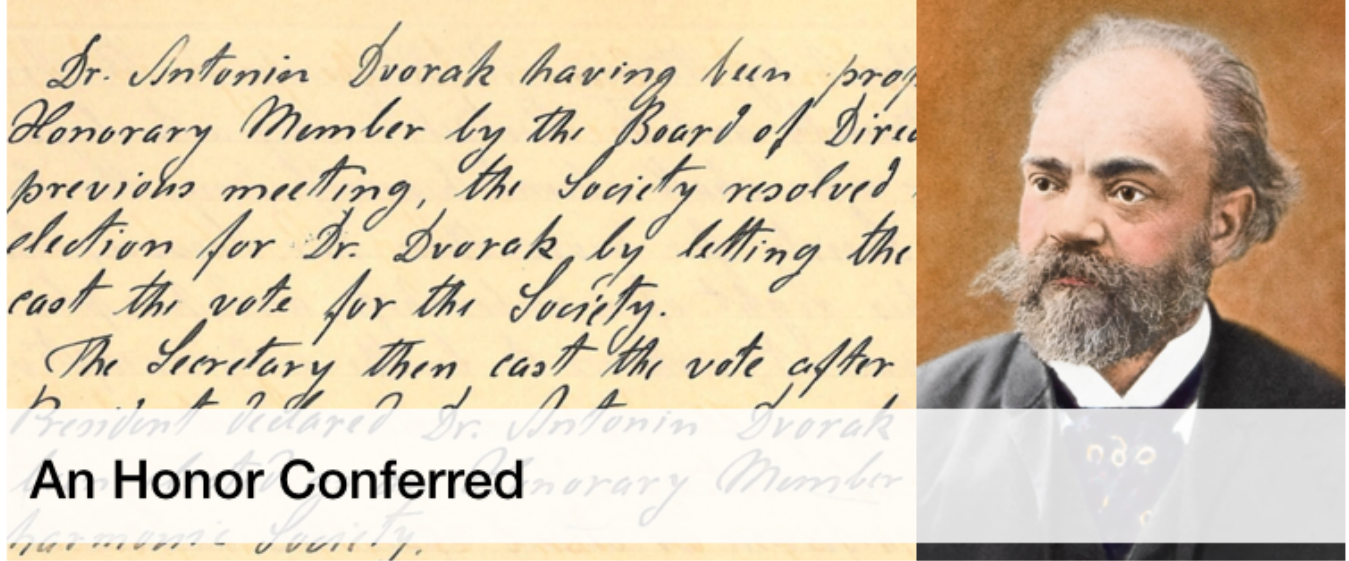 Dr. Antonin Dvorak having been prop
Honorary Member by the Board of Direc
previous meeting, the Society resolved
election for Dr. Dvorak by letting the
cast the vote for the Society.
The Secretary then cast the vote after
President declared Dr. Antonin Dvorak
Honorary Member
harmonic Society.
An Honor Conferred